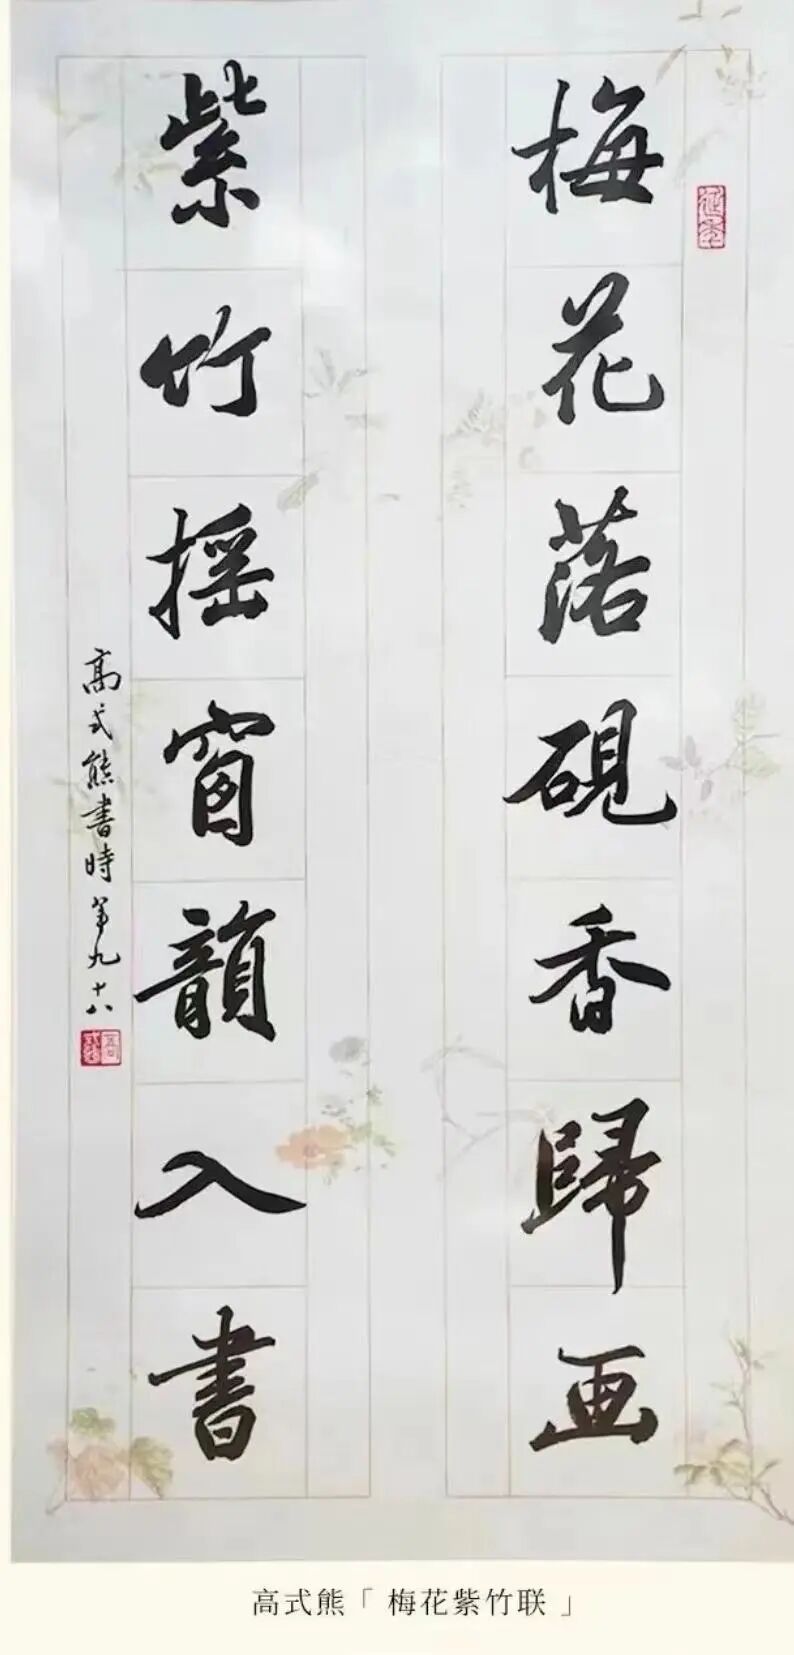 梅花落硯香歸画
紫竹摇窗韻入書
高式熊書時年九十八
高式熊「梅花紫竹联」